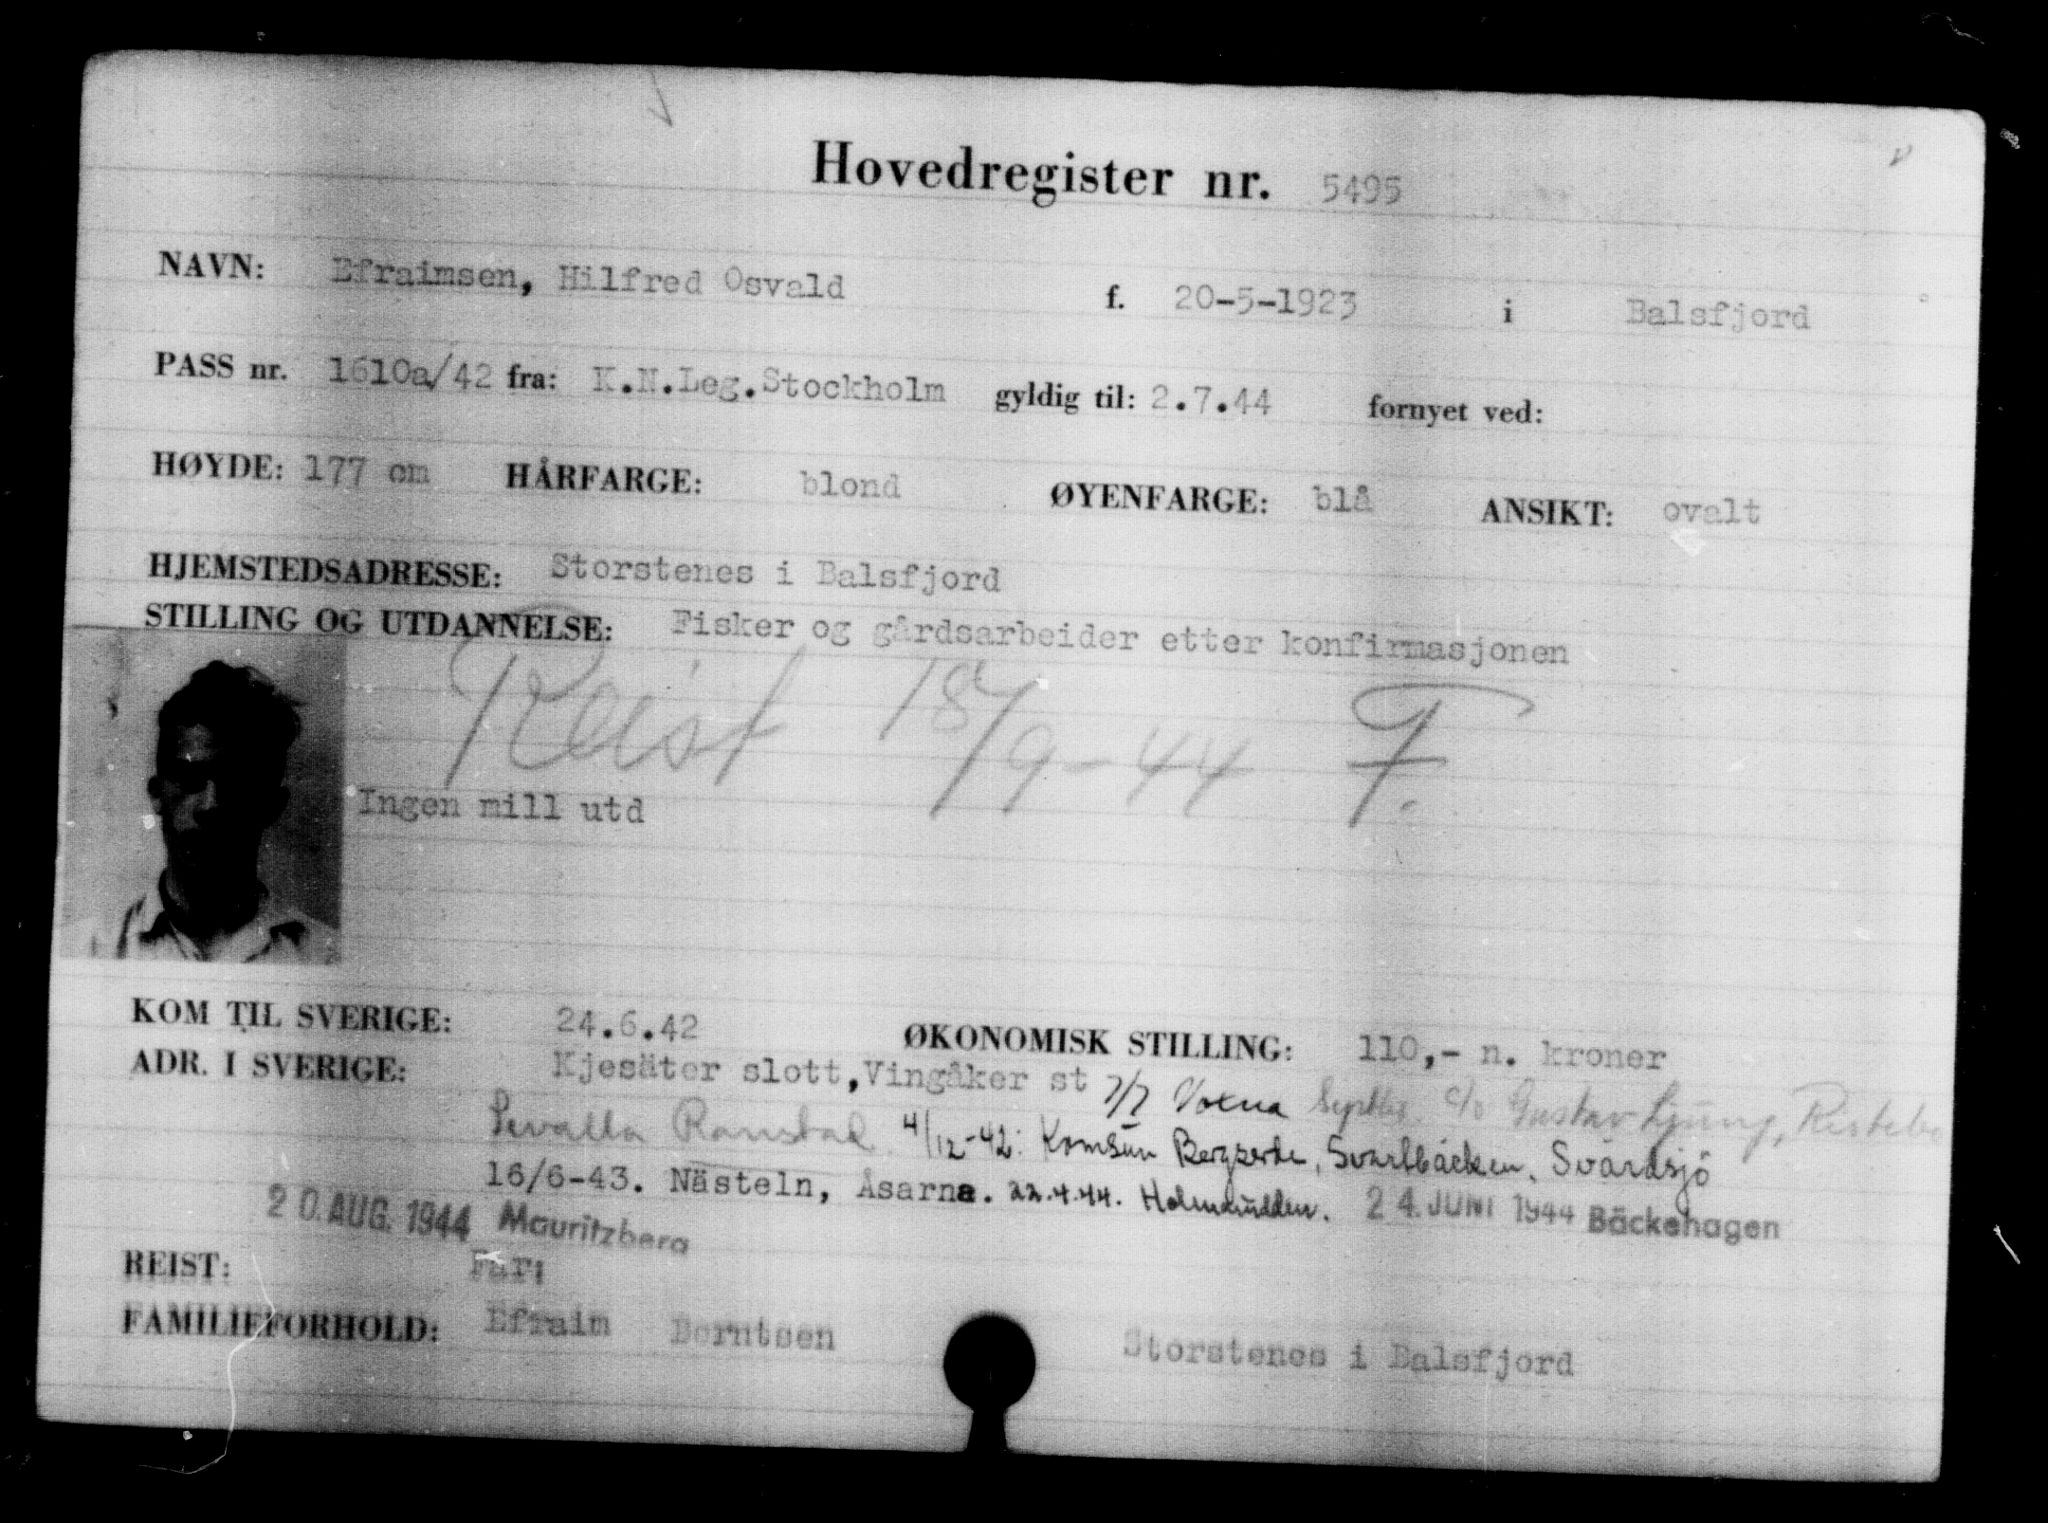 Hovedregister nr. 5495
NAVN: Efraimsen, Hilfred Osvald f. 20-5-1923 i Balsfjord
PASS nr. 1610a/42 fra: K.N.Leg.Stockholm gyldig til: 2.7.44 fornyet ved:
HØYDE: 177 cm HÅRFARGE: blond ØYENFARGE: blå ANSIKT: ovalt
HJEMSTEDSADRESSE: Storstenes i Balsfjord
STILLING OG UTDANNELSE: Fisker og gårdsarbeider etter konfirmasjonen
Reist 18/9-44 F.
Ingen mill utd
KOM TIL SVERIGE: 24.6.42 ØKONOMISK STILLING: 110,- n. kroner
ADR. I SVERIGE: Kjesäter slott, Vingåker st 7/7 Voxna c/o Gustav Ljung,
4/12-42: Svartbäcken, Svärdsjö
16/6-43. Nästeln, Åsarna. 22.4.44. 24 JUNI 1944 Bäckehagen
20. AUG. 1944 Mauritzberg
REIST: Far:
FAMILIEFORHOLD: Efraim Berntsen Storstenes i Balsfjord